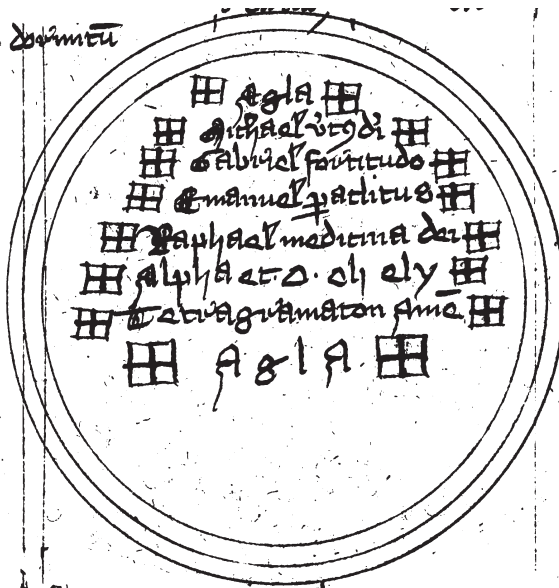 dormitū
⊞ Agla ⊞
⊞ Michael v̉t9 dỉ ⊞
⊞ Gabriel fortitudo ⊞
⊞ Emanuel ꝑaclitus ⊞
⊞ Raphael medicina dei ⊞
⊞ Alpha et. O. eli ely ⊞
⊞ Tetragramaton Amē ⊞
⊞ A g l A ⊞